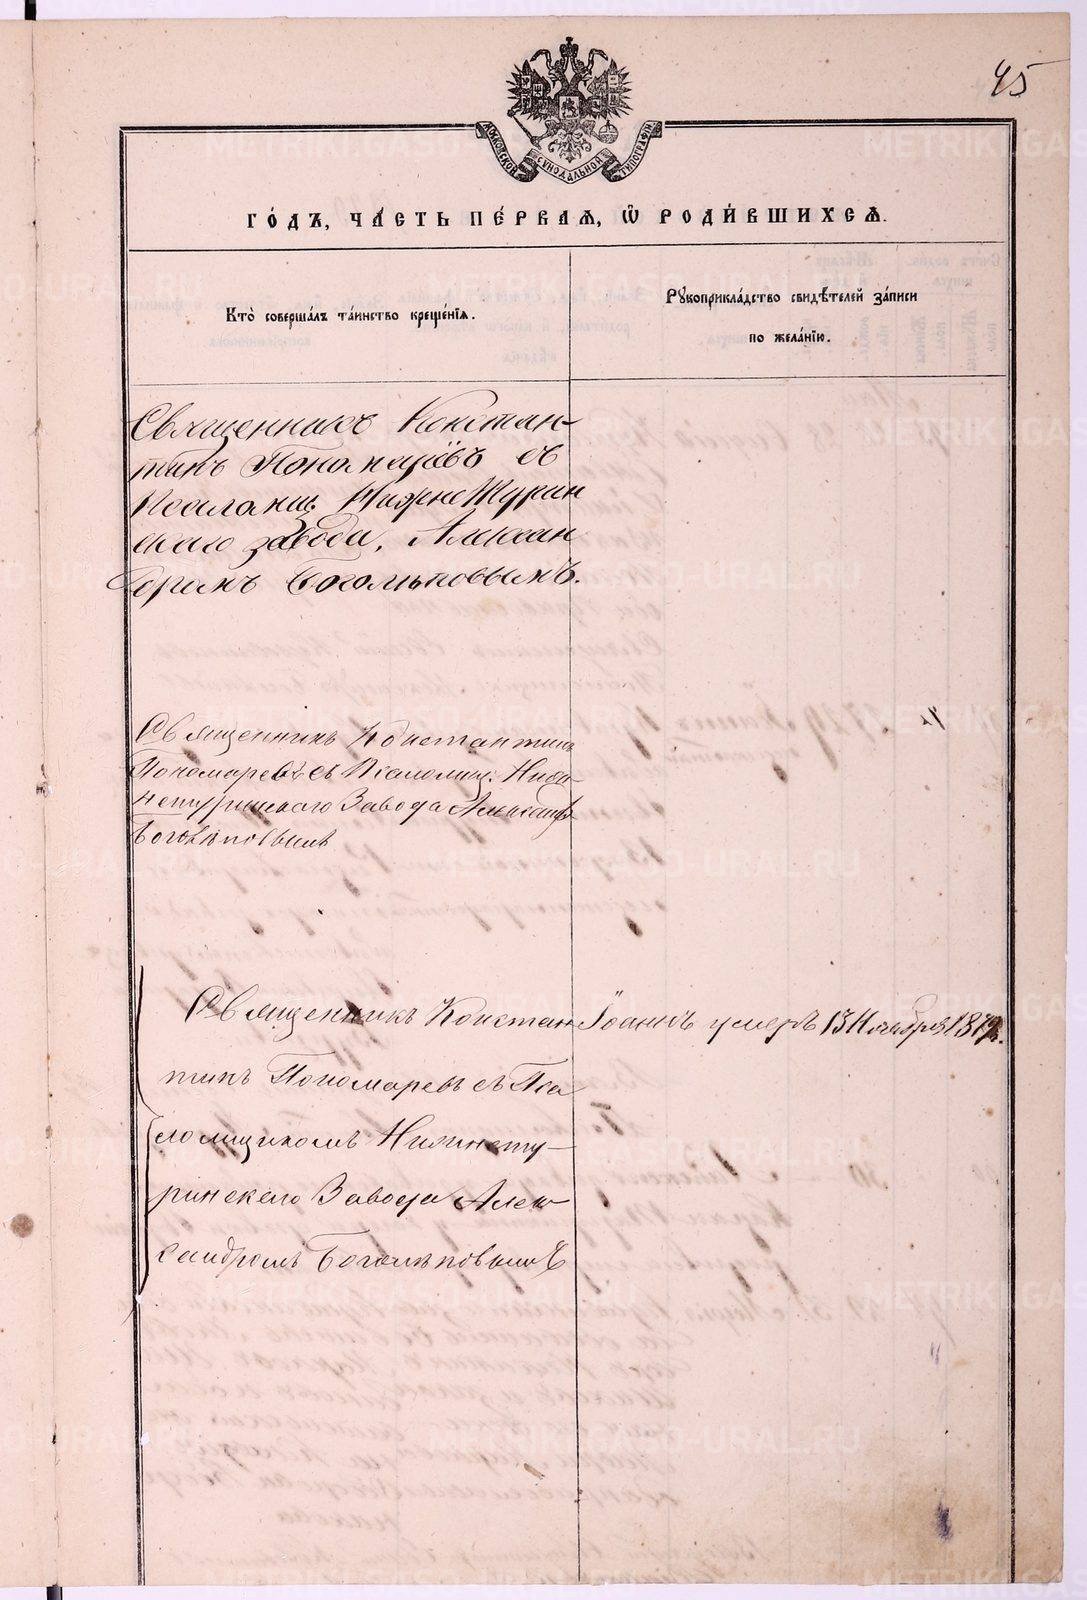 45
МОСКОВСКОЙ СѴНОДАЛЬНОЙ ТИПОГРАФІИ
ГО́ДЪ, ЧА́СТЬ ПЕ́РВАЯ, Ѿ РОДИ́ВШИХСЯ.
Кто̀ соверша́лъ та́инство креще́нія.
Рꙋкоприкла́дство свидѣ́телей за́писи
по жела́нію.
Священникъ Констан-
тинъ Пономарёвъ съ
Псаломщ. НижнеТурин
скаго завода, Алексан
дромъ Боголѣповымъ.
Священникъ Константинъ
Пономаревъ съ Псаломщ. Ниж-
нетуринскаго Завода Александр
Боголѣповымъ
Священникъ Констан
тинъ Пономаревъ съ Пса
ломщикомъ Нижнету-
ринскаго Завода Алек-
сандромъ Боголѣповымъ
Іоаннъ умеръ 13 Ноября 1879г.
METRIKI.GASO-URAL.RU